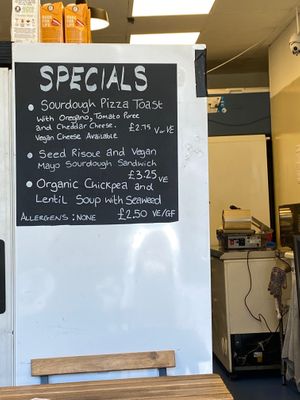 SPECIALS
• Sourdough Pizza Toast
With Oregano, Tomato Puree
and Cheddar Cheese. £2.75 V or VE
Vegan Cheese Available
• Seed Risole and Vegan
Mayo Sourdough Sandwich
£3.25 VE
• Organic Chickpea and
Lentil Soup with Seaweed
Allergens: None £2.50 VE/GF